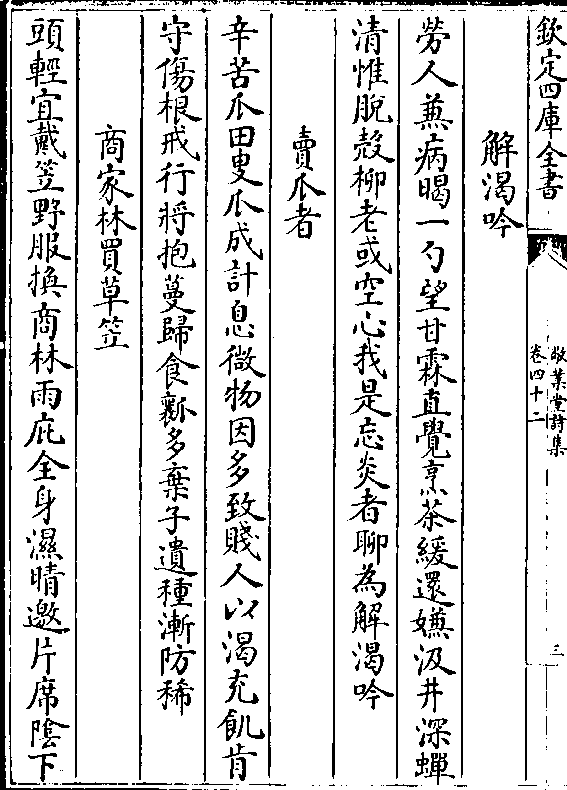 欽定四庫全書
敬業堂詩集
卷四十二
三
解渴吟
勞人蕪病暍一勺望甘霖直覺烹茶緩還嫌汲井深蟬
清惟脫殼柳老或空心我是忘炎者聊為解渴吟
賣瓜者
辛苦瓜田叟瓜成計息微物因多致賤人以渴充飢肯
守傷根戒行將抱蔓歸食瓤多棄子遺種漸防稀
商家林買草笠
頭輕宜戴笠野服換商林雨庇全身濕晴邀片席陰下